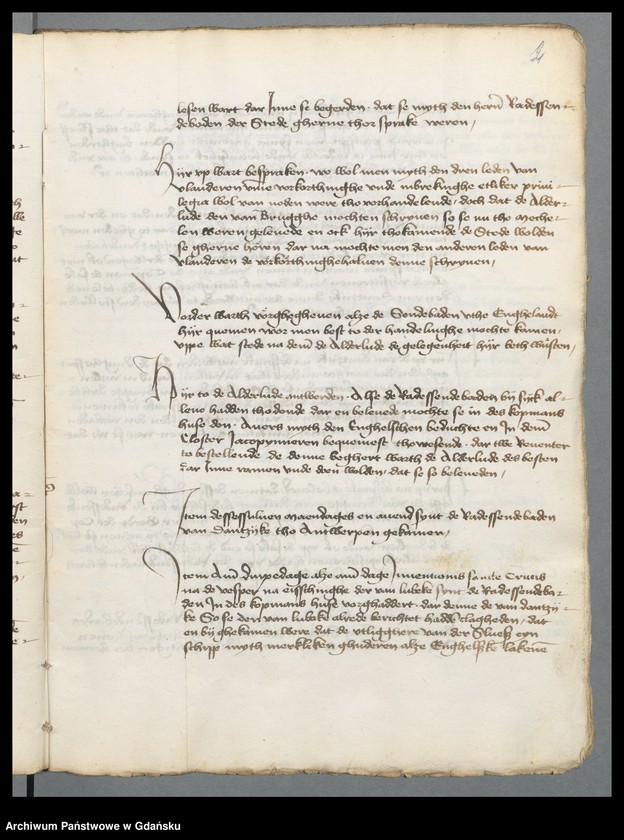 2
losen wart dar Inne se begerden · dat se myth den hern Radessen-
deboden der Stede gherne thor sprake weren /
Hijr vp wart bespraken · wo wol men myth den dren leden van
vlanderen vmme vorkorthinghe vnde inbrekinghe etliker priui-
legia wol van noden were tho vorhandelende / doch dat de Alder-
lude den van Brugghe mochten schryuen so se nu tho Meche-
len weren / geleuede en ock hijr thokamende de Stede wolden
se gherne horen dar na mochte men den anderen leden van
vlanderen de vorkorthinghe haluen denne schryuen /
Vorder warth vorghegheuen alze de Sendebaden vthe Enghelandt
hijr quemen wor men best to der handelinghe mochte kamen /
vppe wat stede na dem de Alderlude de gelegenheit hijr beth wusten /
Hijr to de Alderlude antworden · Alse de Radessendebaden by sick al-
lene hadden thodonde dar en beleuede mochte se in des kopmans
huse don · Auers myth den Enghelschen beduchte en In dem
Closter Jacopynneren bequemest thowesende · dar twe Reuenter
to bestellende de denne beghert warth de Alderlude des besten
dar Inne ramen vnde doen wolden · dat se so beleueden /
Item dessessuluen maendages en auend synt de Radessendebaden
van Dantzijke tho Antwerpen gekamen /
Item Am Dinxedage alze am dage Inuentionis sancte Crucis
na de vesper na eisschinghe der van lubeke synt de Radessendeba-
den In des kopmans huse vorghaddert · dar denne de van dantzi-
ke So se den van lubeke alrede berichtet hadden clagheden / dat
en by ghekamen were dat de vtliggere van der Sluesz eyn
schipp myth merkliken ghuderen alze Enghelsche lakene
Archiwum Państwowe w Gdańsku